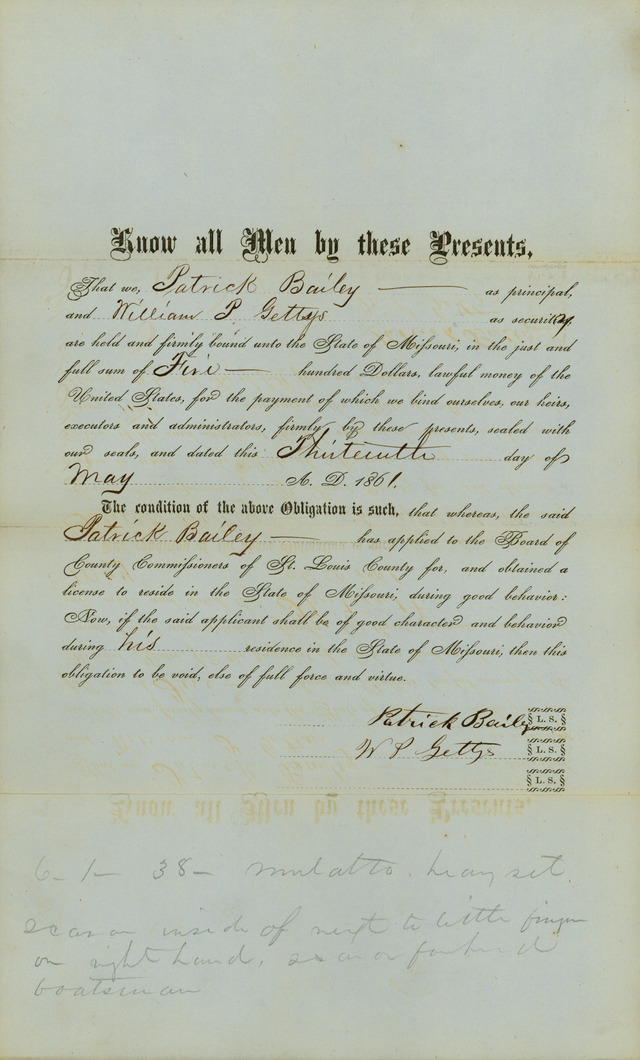 Know all Men by these Presents,
That we, Patrick Bailey as principal,
and William P. Gettys as security
are held and firmly bound unto the State of Missouri, in the just and
full sum of Five hundred Dollars, lawful money of the
United States, for the payment of which we bind ourselves, our heirs,
executors and administrators, firmly by these presents, sealed with
our seals, and dated this Thirteenth day of
May A. D. 1861.
The condition of the above Obligation is such, that whereas, the said
Patrick Bailey has applied to the Board of
County Commissioners of St. Louis County for, and obtained a
license to reside in the State of Missouri, during good behavior:
Now, if the said applicant shall be of good character and behavior
during his residence in the State of Missouri, then this
obligation to be void, else of full force and virtue.
Patrick Bailey L. S.
W P Gettys L. S.
L. S.
6-1- 38- mulatto. heavy set.
scar on inside of next to little finger
on right hand. scar on forhead
boatsman